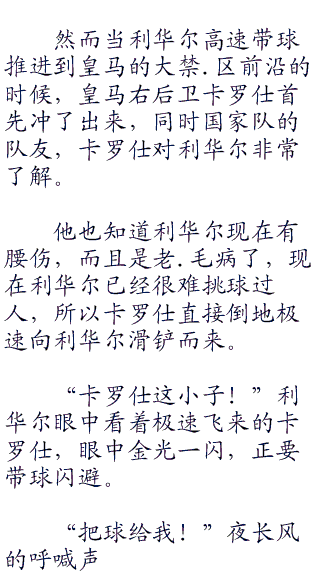 然而当利华尔高速带球
推进到皇马的大禁.区前沿的
时候，皇马右后卫卡罗仕首
先冲了出来，同时国家队的
队友，卡罗仕对利华尔非常
了解。
他也知道利华尔现在有
腰伤，而且是老.毛病了，现
在利华尔已经很难挑球过
人，所以卡罗仕直接倒地极
速向利华尔滑铲而来。
“卡罗仕这小子！”利
华尔眼中看着极速飞来的卡
罗仕，眼中金光一闪，正要
带球闪避。
“把球给我！”夜长风
的呼喊声